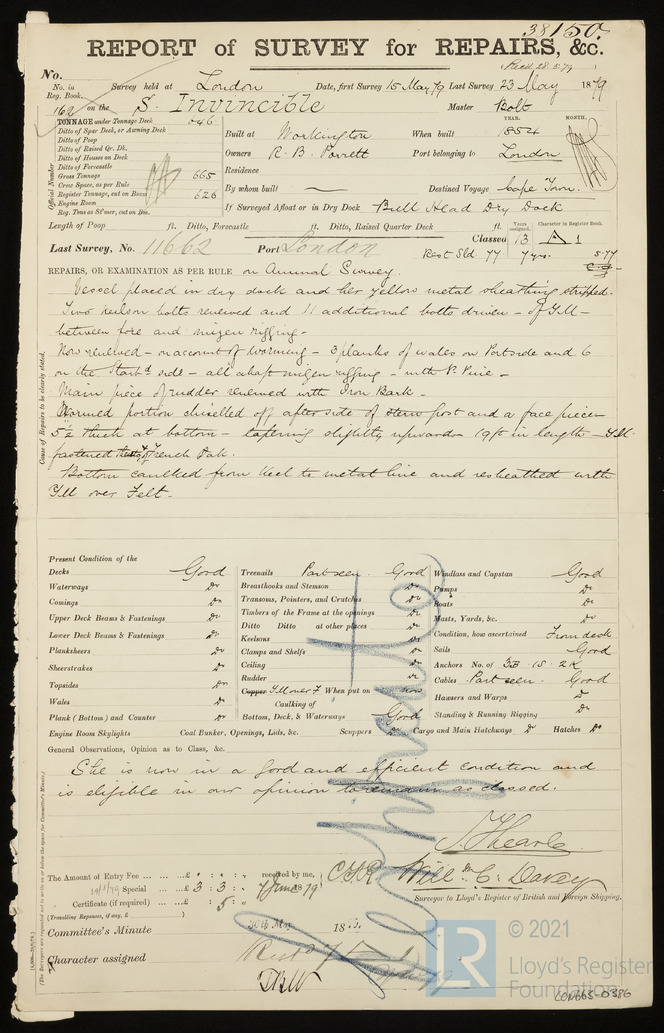 38150
REPORT of SURVEY for REPAIRS, &c.
Recd 28.5.79
No.
No. in Reg. Book. Survey held at London Date, first Survey 15 May 79 Last Survey 23 May 1879
162 on the S. Invincible Master Bolt
TONNAGE under Tonnage Deck 646
Ditto of Spar Deck, or Awning Deck
Ditto of Poop
Ditto of Raised Qr. Dk.
Ditto of Houses on Deck
Ditto of Forecastle
Gross Tonnage 665
Crew Space, as per Rule
Register Tonnage, cut on Beam 626
Engine Room
Reg. Tons as St'mer, cut on Bm.
Official Number
YEAR. MONTH.
Built at Workington When built 1854
Owners R. B. Porrett Port belonging to London
Residence
By whom built — Destined Voyage Cape Town.
If Surveyed Afloat or in Dry Dock Bull Head Dry Dock
Length of Poop ft. Ditto, Forecastle ft. Ditto, Raised Quarter Deck ft.
Years assigned Character in Register Book.
Classed 13 A 1
Last Survey, No. 11662 Port London
Rest Sld. 77 7 yrs. 5.77
REPAIRS, OR EXAMINATION AS PER RULE on Annual Survey.
Vessel placed in dry dock and her yellow metal sheathing stripped.
Two keelson bolts renewed and 11 additional bolts driven – of Y.M –
between fore and mizen rigging –
Now renewed – on account of worming – 3 planks of wales on Port side and 6
on the Starbd side – all abaft mizen rigging – with P. Pine –
Main piece of rudder renewed with Iron Bark –
Wormed portion chiselled off after side of stern post and a face piece
5½ thick at bottom – tapering slightly upwards 19 ft in length – Y.M.
fastened of French Oak.
Bottom caulked from Keel to metal line and resheathed with
YM over Felt –
Cause of Repairs to be clearly stated.
Present Condition of the
Decks Good
Waterways Do
Comings Do
Upper Deck Beams & Fastenings Do
Lower Deck Beams & Fastenings Do
Planksheers Do
Sheerstrakes Do
Topsides Do
Wales Do
Plank (Bottom) and Counter Do
Engine Room Skylights
Treenails Part seen. Good
Breasthooks and Stemson Do
Transoms, Pointers, and Crutches Do
Timbers of the Frame at the openings Do
Ditto Ditto at other places Do
Keelsons Do
Clamps and Shelfs Do
Ceiling Do
Rudder Do
Copper YM over F When put on now
Caulking of
Bottom, Deck, & Waterways Good
Coal Bunker, Openings, Lids, &c. Scuppers Do
Windlass and Capstan Good
Pumps Do
Boats Do
Masts, Yards, &c. Do
Condition, how ascertained From deck
Sails Good
Anchors No. of 3B. 1S. 2K
Cables Part seen. Good
Hawsers and Warps Do
Standing & Running Rigging Do
Cargo and Main Hatchways Do Hatches Do
General Observations, Opinion as to Class, &c.
She is now in a good and efficient condition and
is eligible in our opinion to remain as classed.
J. Hearle
Will m C. Davey
Surveyor to Lloyd's Register of British and Foreign Shipping.
The Amount of Entry Fee ... £ : : received by me,
Special ... £ 3 : 3 : 7 June 1879
Certificate (if required) ... : 5 :
(Travelling Expenses, if any, £ )
Committee's Minute 30th May 18
Character assigned
© 2021
Lloyd's Register
Foundation
LR
LON665-0386